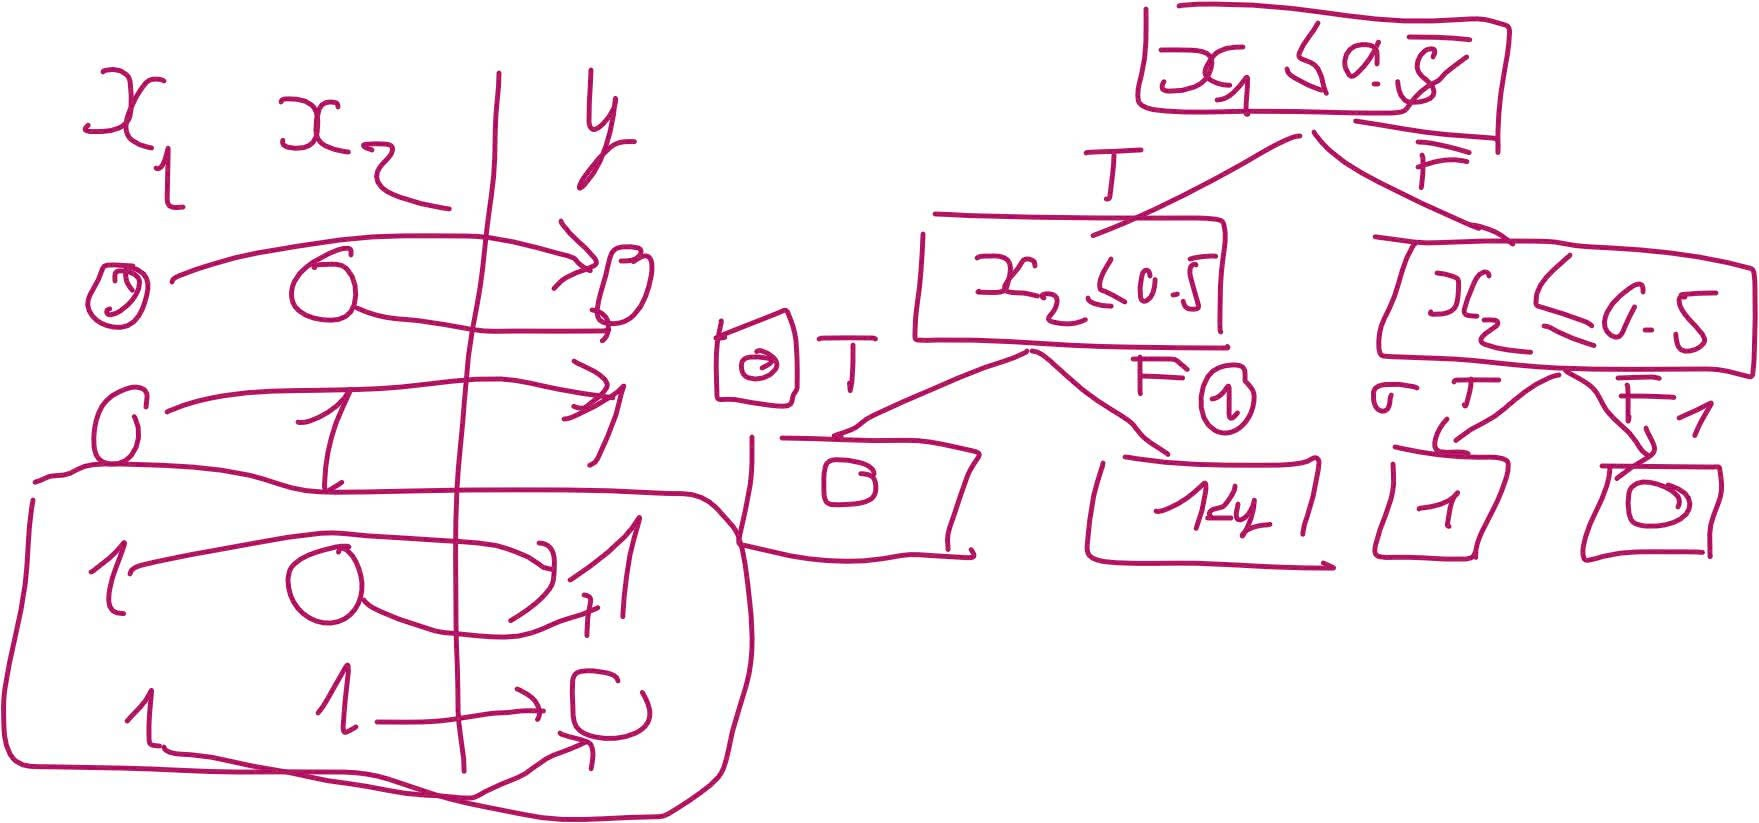 x₁ x₂ y
0 0 0
0 1 1
1 0 1
1 1 0
x₁ ≤ 0.5
T F
x₂ ≤ 0.5 x₂ ≤ 0.5
0 T F 1 0 T F 1
0 1 1 0